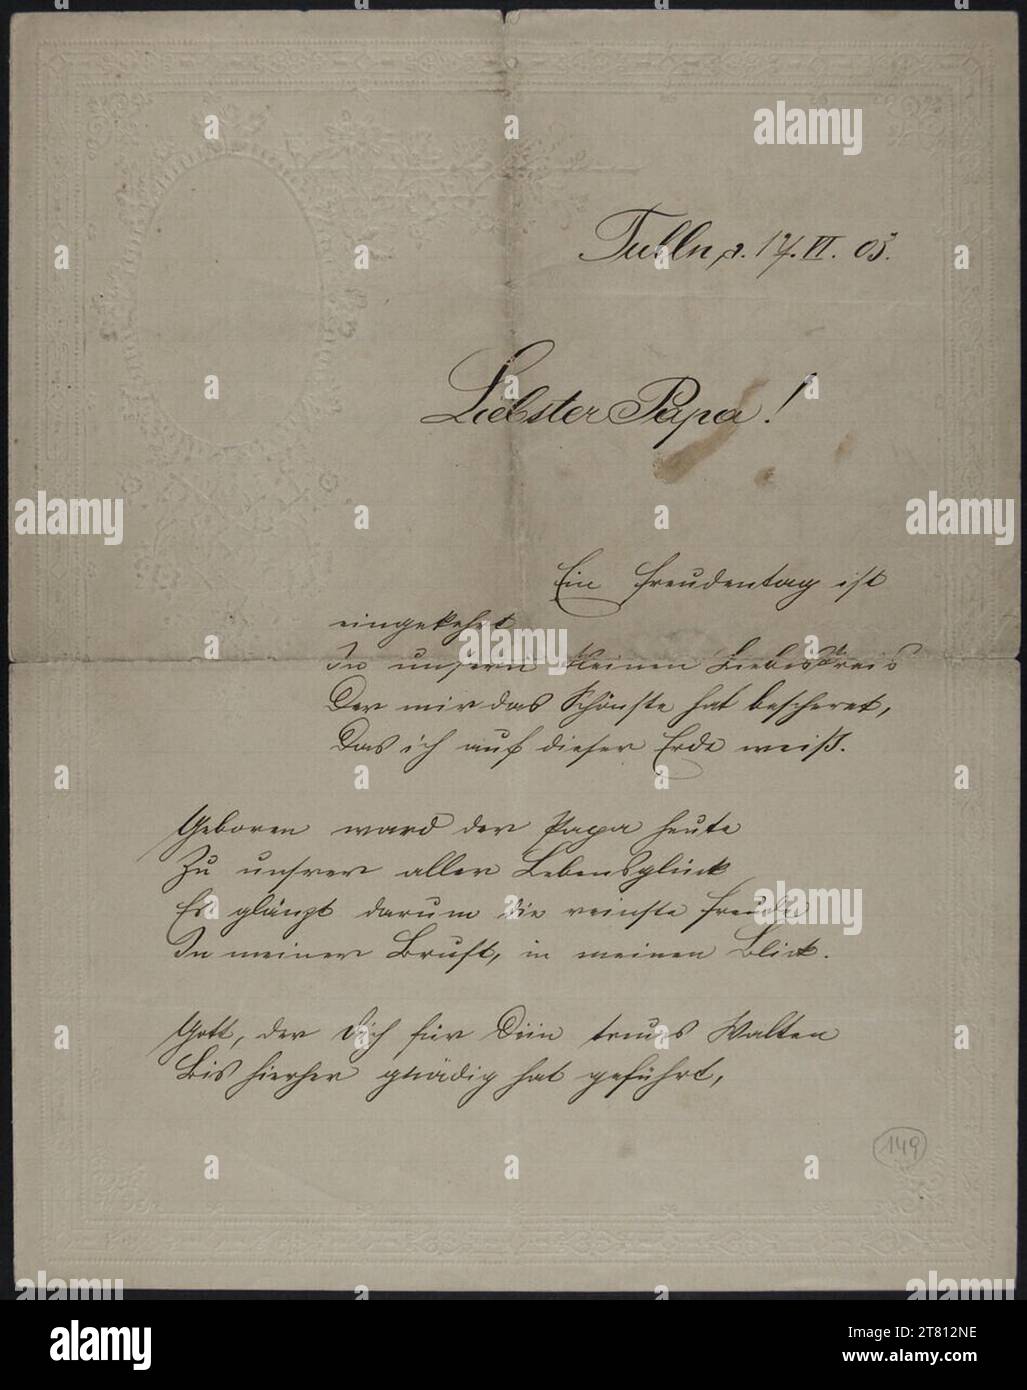 Tulln, d. 17. VI. 03.
Liebster Papa!
Ein Freudentag ist
eingekehrt
In unsern kleinen Liebeskreis
Der mir das Schönste hat bescheret,
Das ich auf dieser Erde weiß.
Geboren ward der Papa heute
Zu unsrer aller Lebensglück
Es glänzt darum die reinste Freude
In meiner Brust, in meinen Blick.
Gott, der Dich für Dein treues Walten
Bis hierher gnädig hat geführt,
149
alamy
Image ID: 2T812NE
www.alamy.com